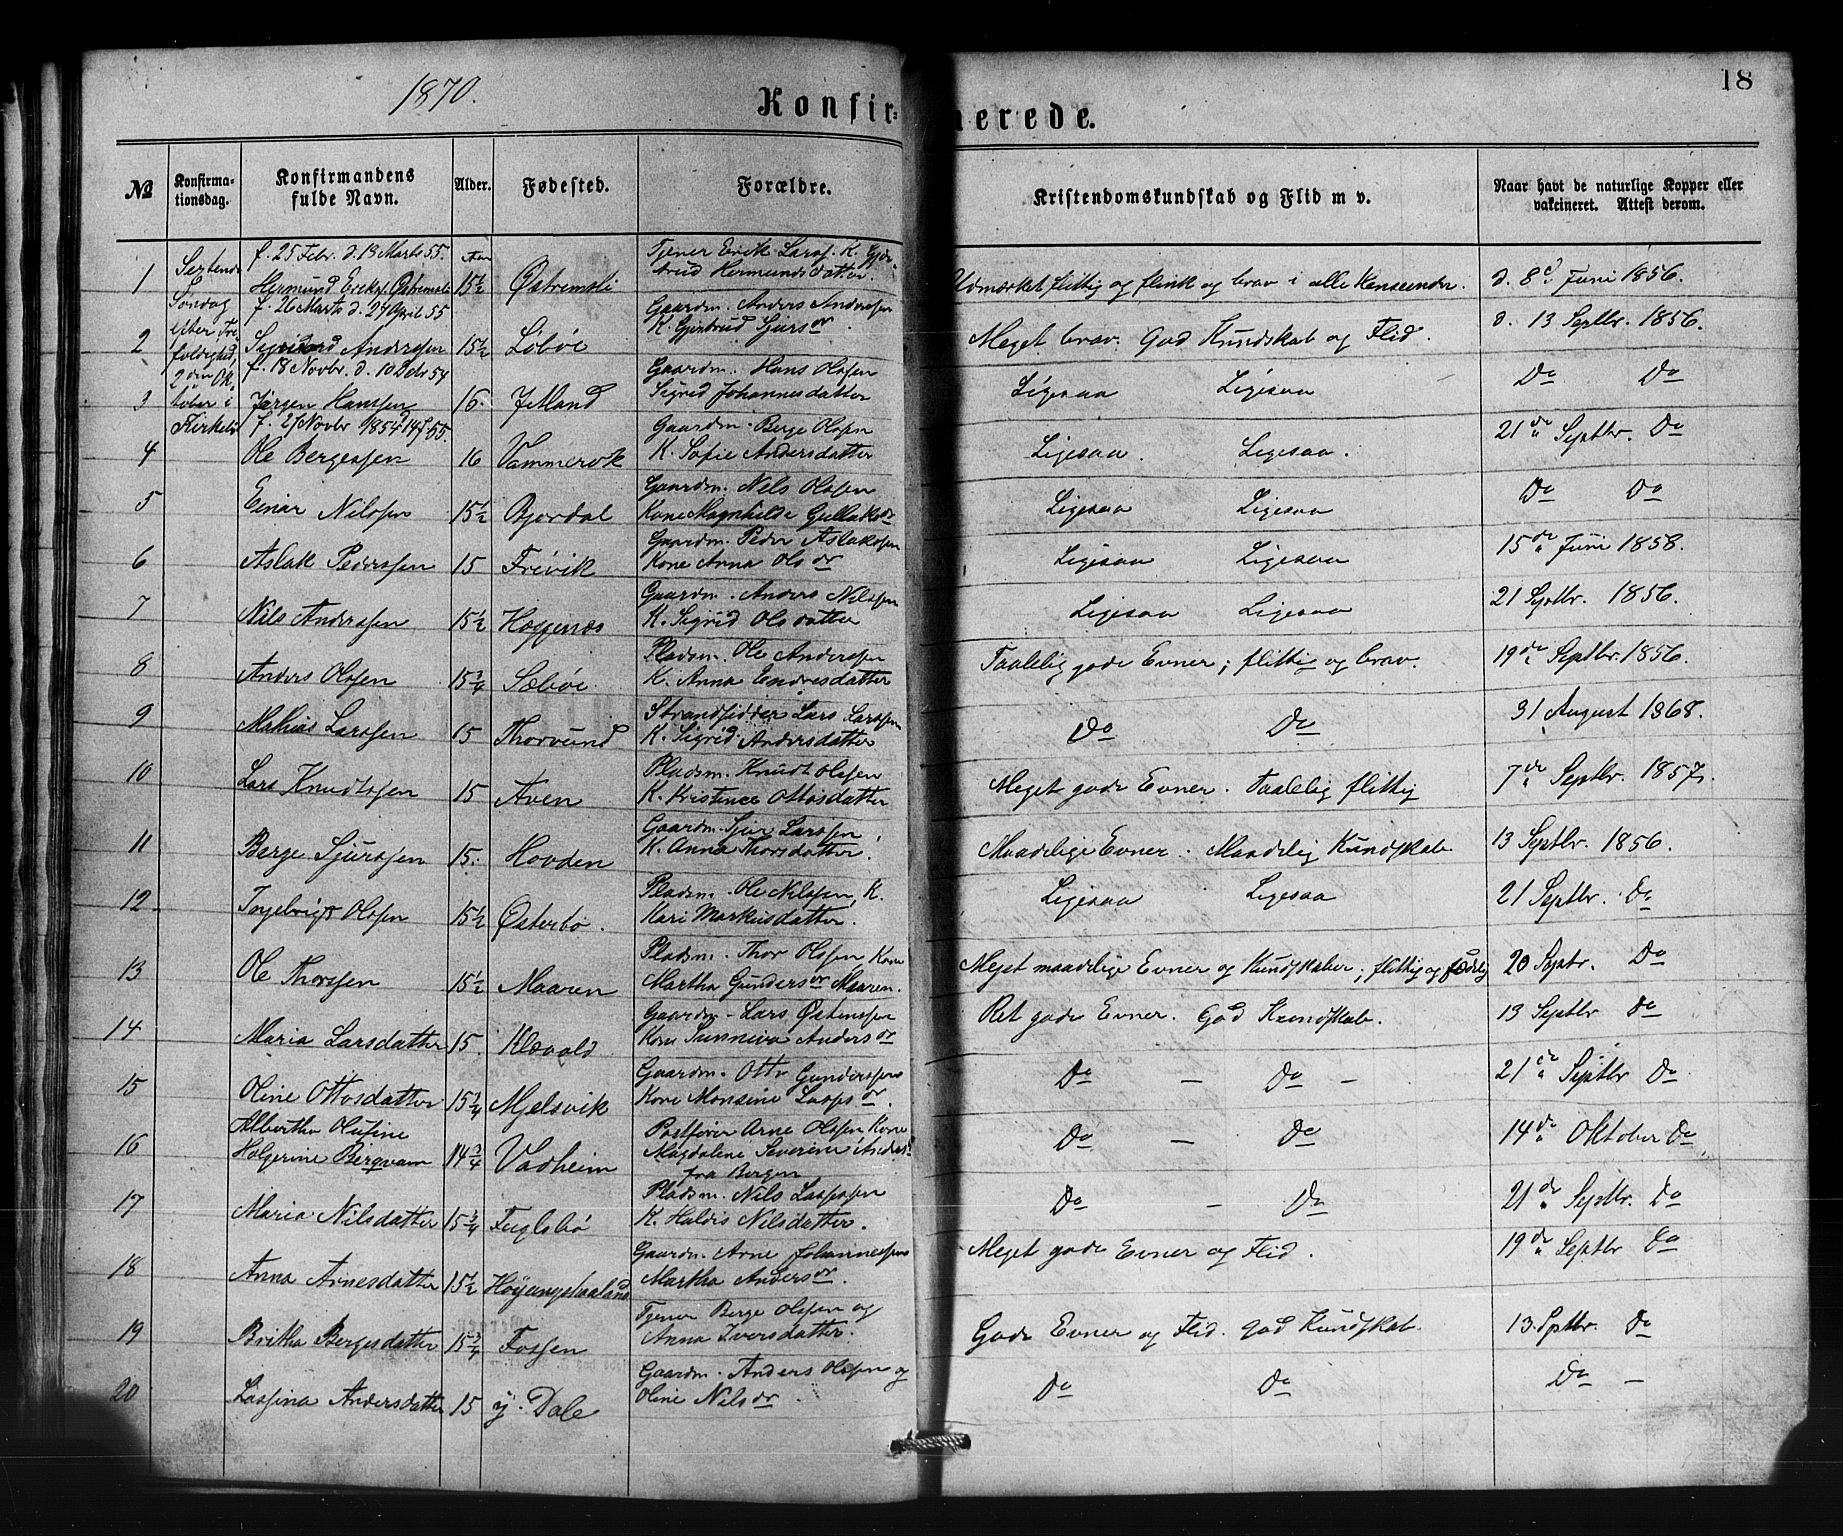 1870.
18
Konfir=
merede.
№
Konfirma-
tionsdag.
Konfirmandens
fulde Navn.
Alder.
Fødested.
Forældre.
Kristendomskundskab og Flid m v.
Naar havt de naturlige Kopper eller
vakcineret. Attest derom.
Søndag
efter Tre
foldighed,
2den Ok,
tober i
1
f. 25 Febr. d. 13 Marts 55.
Hermund Eriks. Østremsli
15½
Østremsli
Tjener Erik Larss. K. Gjer
trud Hermundsdatter.
Udmærket flittig og flink og brav i alle Henseender.
d. 8d Juni 1856.
2
f. 26 Marts d. 29 April 55
Andersen
15½
Libøe
Gaardm. Anders Anderssen
K. Gjertrud Sjursdr.
Meget brav. God Kundskab og Flid.
d. 13 Septbr. 1856.
3
f. 18 Novbr. d. 10 Debr 54
Jørgen Hanssen
16.
Jetland
Gaardm. Hans Olssen
Sigrid Johannesdatter
Ligesaa Ligesaa
Do Do
4
f. 27 Novbr 1854
Ole Bergessen
16
Vammervok
Gaardm. Berge Olssen
K. Sofie Andersdatter
Ligesaa. Ligesaa.
21de Septbr. Do
5
Einar Nilssen
15½
Bjordal
Gaardm. Nels Olssen
Kone Magnhilde Gullaksdr
Ligesaa Ligesaa
Do Do
6
Aslak Pederssen
15
Frivik
Gaardm. Peder Aslakssen
Kone Anna Olsdr
Ligesaa Ligesaa
15de Juni 1858.
7
Nils Anderssen
15½
Høyenæs
Gaardm. Anders Nilssen
K. Sigrid Olsdatter
Ligesaa Ligesaa
21 Septbr. 1856.
8
Anders Olssen
15¾
Sæbøe.
Pladsm. Ole Anderssen
K. Anna Endresdatter
Taalelig gode Evner; flittig og brav.
19de Septbr. 1856.
9
Mathias Larssen
15
Thorvund
Strandsidder Lars Larssen
K. Sigrid Andersdatter
Do Do
31 August 1868.
10
Lars Knudtssen
15
Aven
Pladsm. Knudt Olssen
K. Kristence Ottosdatter
Meget gode Evner. Taalelig flittig
7de Septbr. 1857.
11
Berge Sjurssen
15.
Hovden
Gaardm. Sjur Larssen,
K. Anna Thorsdatter.
Maadelige Evner. Maadelig Kundskab.
13 Septbr. 1856.
12
Ingelvigt Olssen
15½
Østerbø.
Pladsm. Ole Nilssen, K.
Kari Markusdatter.
Ligesaa Ligesaa
21 Septbr. Do
13
Ole Thorssen
15½
Maaren
Pladsm. Thor Olssen Kone
Martha Gundersdr Maaren.
Meget maadelige Evner og Kundskaber; flittig og
20 Septbr. Do
14
Maria Larsdatter
15.
Klævold
Gaardm. Lars Østenssen
Kone Sunneva Andersdr
Ret gode Evner. God Kundskab.
13 Septbr Do
15
Oline Ottosdatter
15¼
Mjelsvik
Gaardm. Otto Gunderssen
Kone Monsine Larsdr.
Do — Do —
21de Septbr Do
16
Albertha Olufine
Holgerine Bergvam
14¾
Vadheim
Postfører Arne Olssen Kone
Magdalene Severine
fra Bergen
Do — Do
14de Oktober Do
17
Maria Nilsdatter
15¾
Fuglebø
Pladsm. Nils Larssen
K. Haldis Nilsdatter.
Do — Do
21de Septbr. Do
18
Anna Arnesdatter
15½
Gaardm. Arne Johannessen
Martha Andersdr.
Meget gode Evner og Flid.
19de Septbr Do
19
Britha Bergesdatter
15¾
Fossen
Tjener Berge Olssen og
Anna Iversdatter.
Gode Evner og Flid. God Kundskab.
13 Septbr. Do
20
Lassina Andersdatter
15
y. Dale
Gaardm. Anders Olssen og
Oline Nilsdr.
Do Do
Do —